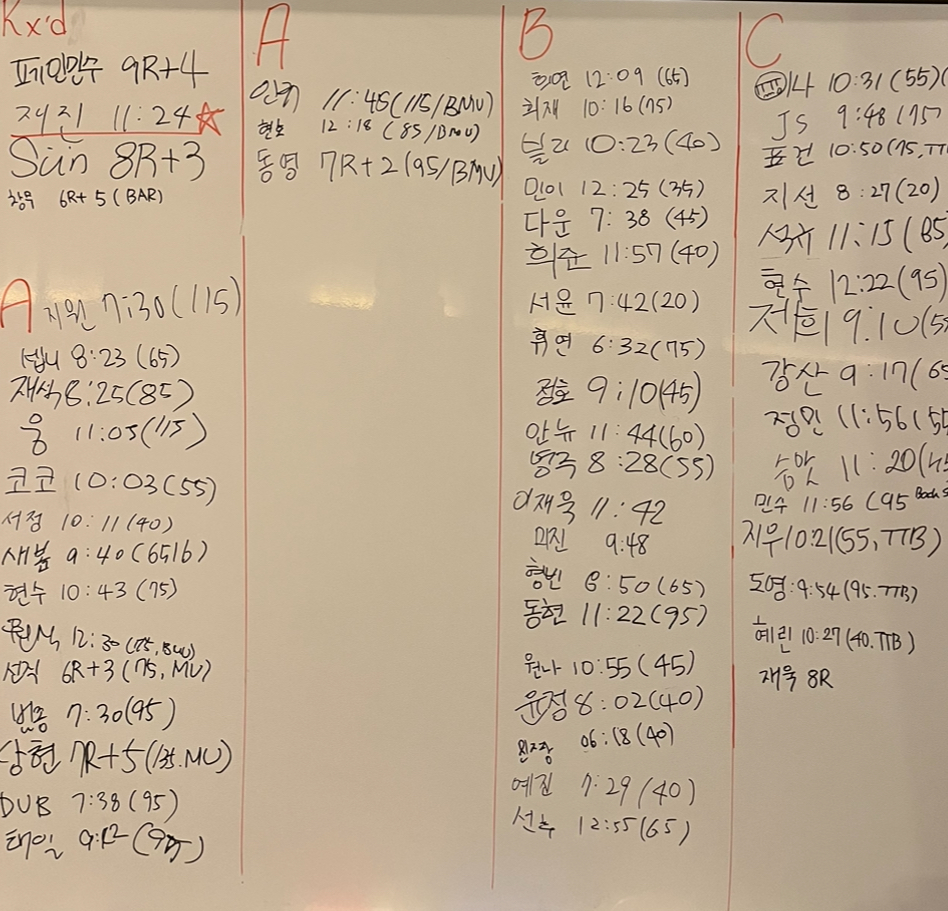 Rx'd
페인민수 9R+4
재진 11:24☆
Sun 8R+3
창우 6R+5 (BAR)
A
지원 7:30 (115)
셉니 8:23 (65)
재석 8:25 (85)
웅 11:05 (115)
코코 10:03 (55)
서정 10:11 (40)
새봄 9:40 (65lb)
현수 10:43 (75)
12:30
선직 6R+3 (75, MU)
범송 7:30 (95)
상현 7R+5 (135.MU)
DUB 7:38 (95)
태일 9:12
A
안키 11:45 (115/BMU)
현호 12:18 (85/BMU)
동영 7R+2 (95/BMU)
B
희연 12:09 (65)
희재 10:16 (75)
빌리 10:23 (40)
민이 12:25 (35)
다운 7:38 (45)
희준 11:57 (40)
서윤 7:42 (20)
휴연 6:32 (75)
정호 9:10 (45)
안뉴 11:44 (60)
병국 8:28 (55)
이재욱 11:42
미진 9:48
형빈 8:50 (65)
동현 11:22 (95)
원나 10:55 (45)
윤정 8:02 (40)
06:18 (40)
예진 7:29 (40)
선호 12:55 (65)
C
나 10:31 (55)
JS 9:48 (75
표건 10:50 (75, TT
지선 8:27 (20)
석규 11:15 (85
현수 12:22 (95)
저희 9:10 (55
강산 9:17 (65
정민 11:56 (55
11:20 (45
민수 11:56 (95 Back S
지우 10:21 (55, TTB)
도영: 9:54 (95.TTB)
혜린 10:27 (40.TTB)
재욱 8R